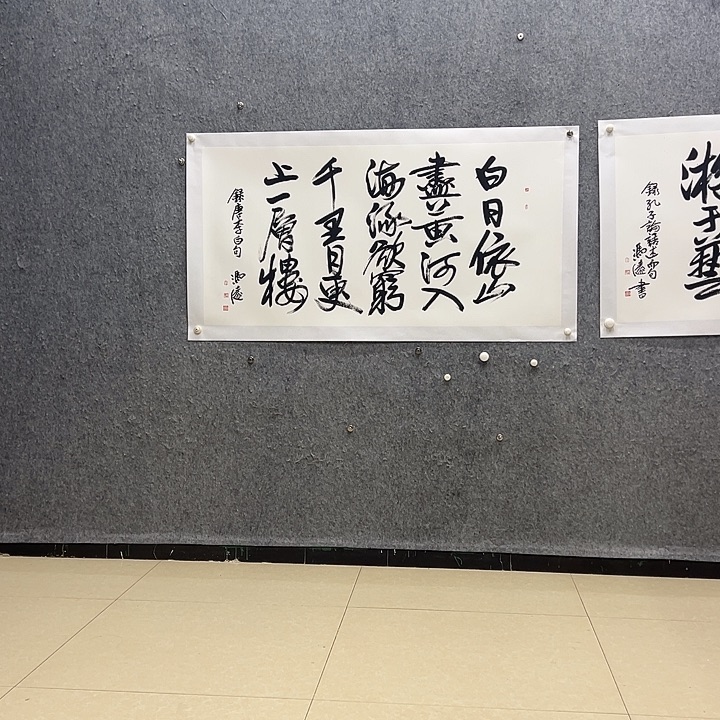 游于藝
錄孔子論語述而句
書
白日依山
盡黄河入
海流欲窮
千里目更
上一層樓
錄唐李白句